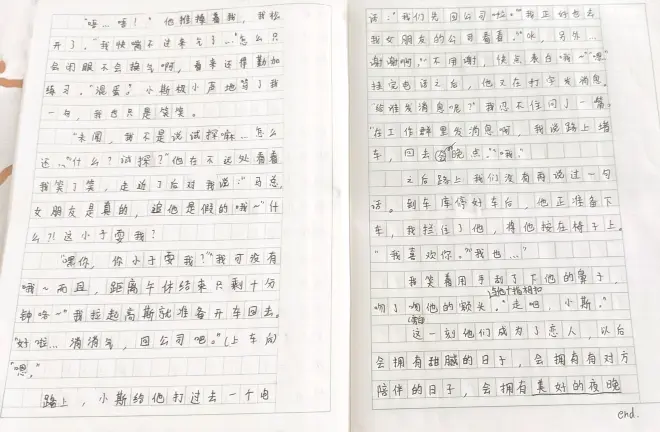 “唔…唔！”他推搡着我，我松
开了。“我快喘不过来气了…”“怎么只
会闭眼不会换气啊，看来还得勤加
练习。”“混蛋。”小斯极小声地骂了我
一句，我也只是笑笑。
“未闻，我不是说试探嘛…怎么
还…”“什么？试探？”他在不远处看着
我笑了笑，走近了后对我说：“马总，
女朋友是真的，追他是假的哦～”“什
么？！这小子耍我？
“嘿你，你小子耍我？”“我可没有
哦～而且，距离午休结束只剩十分
钟咯～”我拉起高斯就准备开车回去。
“好啦…消消气，回公司吧。”（上车后）
“嗯。”
路上，小斯给他打过去一个电
话：“我们先回公司啦。”“我正好也去
我女朋友的公司看看。”“哦，另外…
谢谢啊。”“不用谢，快点表白哦～”“嗯”
挂完电话之后，他又在打字发消息。
“给谁发消息呢？”我忍不住问了一嘴。
“在工作群里发消息啊，我说路上堵
车，回去会晚点。”“哦。”
之后路上我们没有再说过一句
话。到车库停好车后，他正准备下
车，我拦住了他，将他按在椅子上。
“我喜欢你。”“我也…”
我笑着用手刮了下他的鼻子，
吻了吻他的额头，与他十指相扣“走吧，小斯。”
这一刻他们成为了恋人，以后
会拥有甜腻的日子，会拥有有对方
陪伴的日子，会拥有美好的夜晚
end.